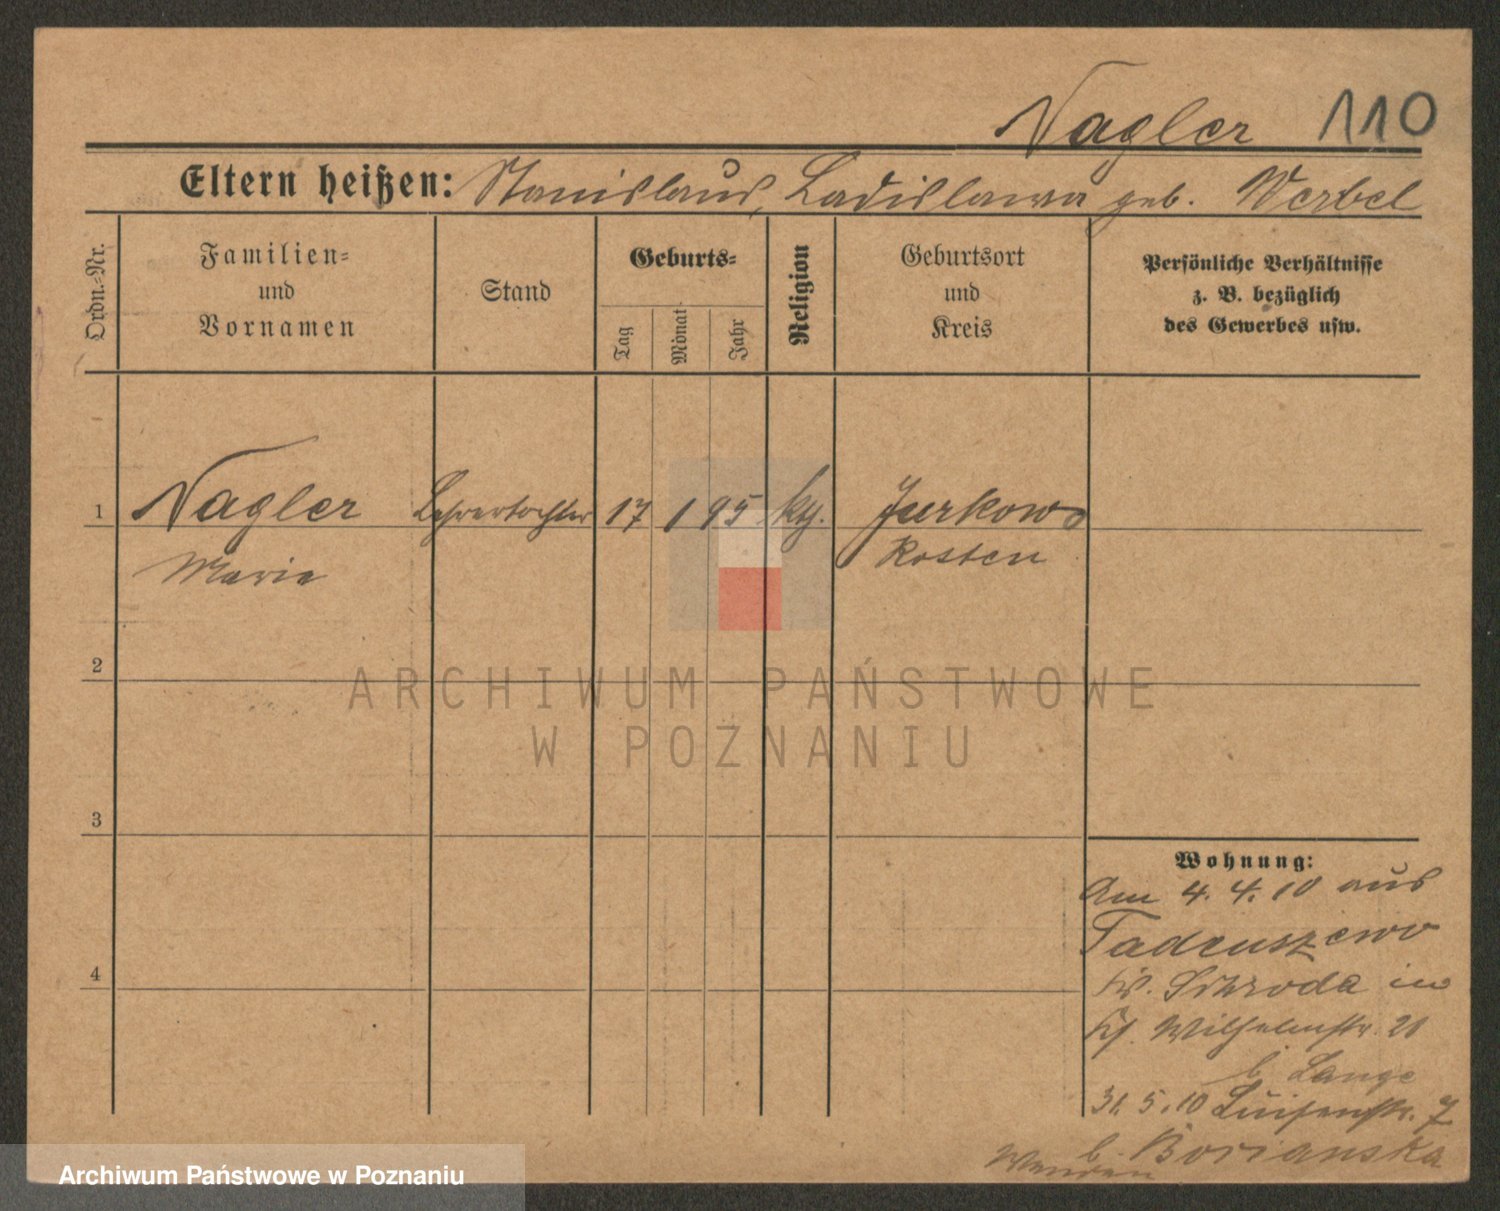 Nagler 110
Eltern heißen: Stanislaus, Ladislawa geb. Werbel
Ordn.-Nr.
Familien-
und
Vornamen
Stand
Geburts-
Tag
Monat
Jahr
Religion
Geburtsort
und
Kreis
Persönliche Verhältnisse
z. B. bezüglich
des Gewerbes usw.
1 Nagler Lehrertochter 17 1 95 kth. Jurkowo
Marie Kosten
2
ARCHIWUM PAŃSTWOWE
W POZNANIU
3
Wohnung:
Am 4. 4. 10 aus
Tadeuszewo
Kr. Schroda in
Wilhelmstr. 21
b. Lange
31. 5. 10 Luisenstr. 7
b. Borianska
Wenden
4
Archiwum Państwowe w Poznaniu